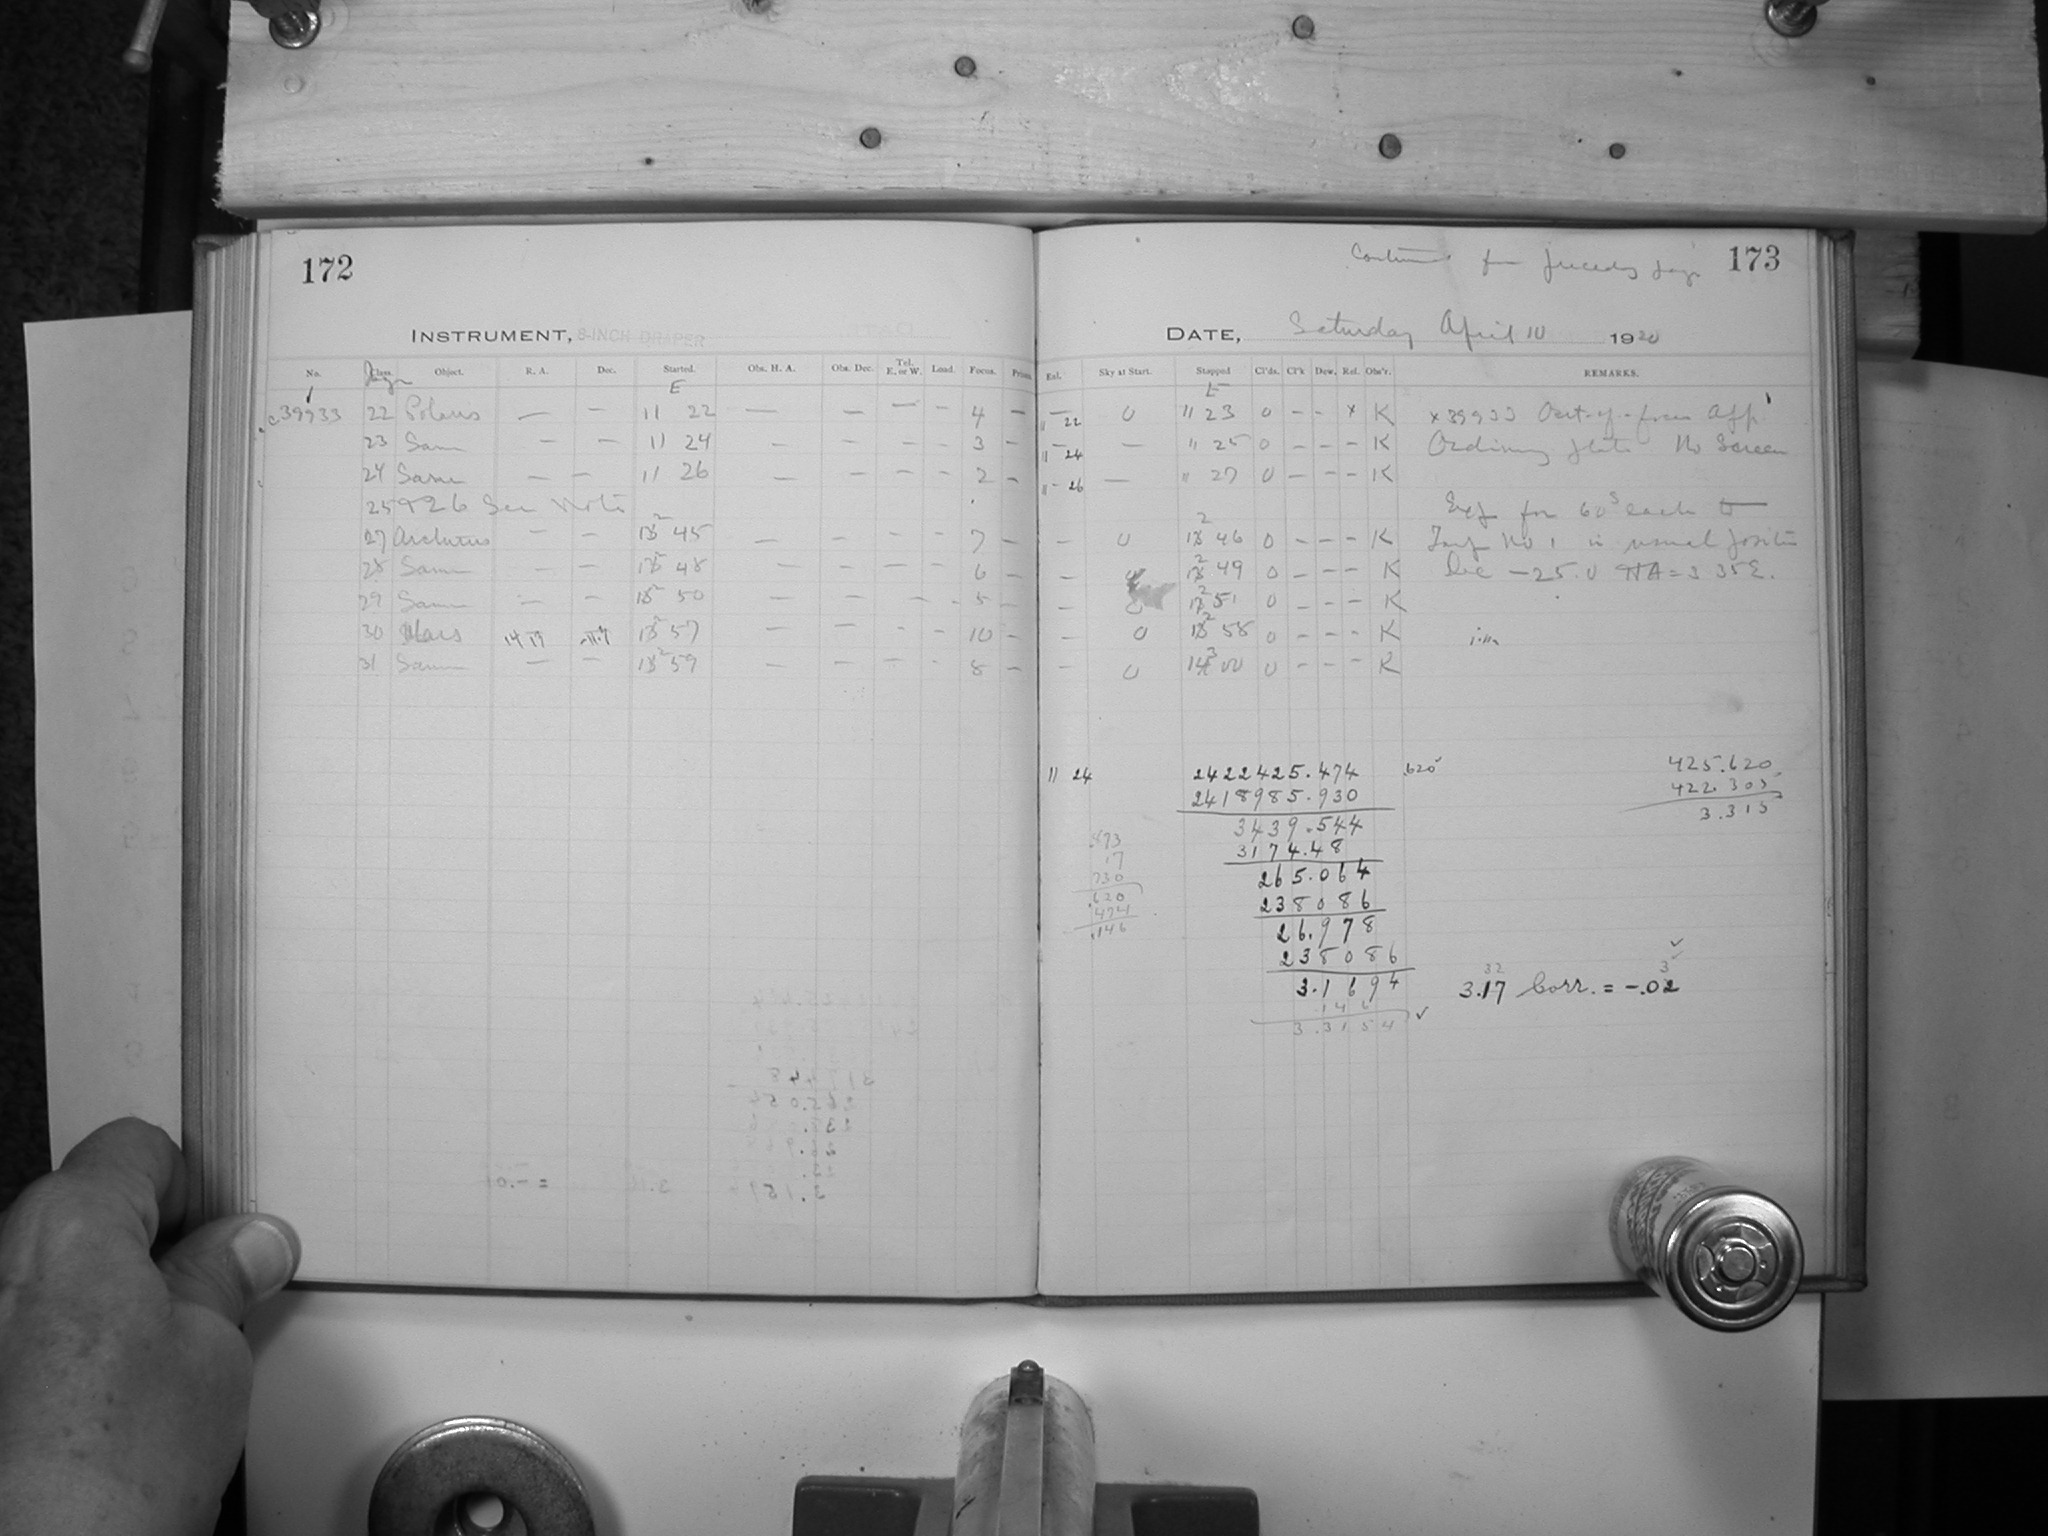 172
INSTRUMENT, 8-INCH DRAPER
No. Class. Object. R. A. Dec. Started. Obs. H. A. Obs. Dec. Tel. E. or W. Load. Focus. Prism.
E
c39933 22 Polaris — — 11 22 — — — - 4 —
23 Same — — 11 24 — — — - 3 —
24 Same — — 11 26 — — — - 2 —
25 + 26 See Note
27 Arcturus — — 2 45 — — — - 7 —
28 Same — — 2 48 — — — - 6 —
29 Same — — 2 50 — — — - 5 —
30 Mars 14 19 2 57 — — - - 10 —
31 Same — — 2 59 — — — - 8 —
173
DATE, Saturday April 10 1920
Exl. Sky at Start. Stopped Cl'ds. Cl'k Dew. Ref. Obs'r. REMARKS.
E
— 11 22 0 11 23 0 - - x K x 39933 Out-of-focus App
— 11 24 — 11 25 0 - - - K Ordinary plate No Screen
11 26 — 11 27 0 - - - K
Exp for 60s each
— 0 2 46 0 - - - K No 1 in usual position
— 0 2 49 0 - - - K Dec —25.0 HA = 3 35 E.
— 0 2 51 0 - - - K
— 0 2 58 0 - - - K
— 0 3 00 0 - - - K
11 24 2422425.474 .620✓ 425.620
2418985.930 422.305
3439.544 3.315
3174.48
265.064
238086
26.978
238086
3.1694
146
3.3154 ✓
873
17
730
.620
474
.146
32 3 ✓
3.17 Corr. = -.02